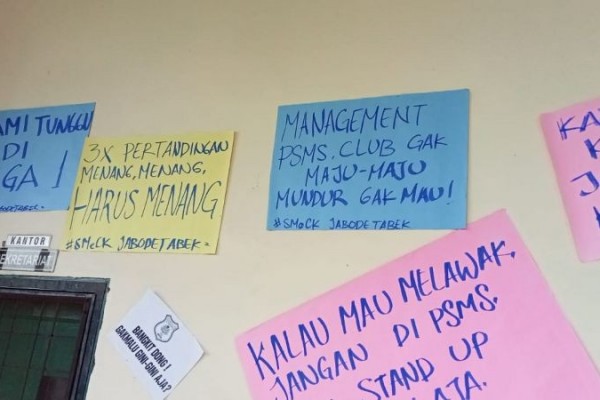 AMI TUNGGU
DI
GA!
3X PERTANDINGAN
MENANG, MENANG,
HARUS MENANG
#SMeCK JABODETABEK.
MANAGEMENT
PSMS. CLUB GAK
MAJU-MAJU
MUNDUR GAK MAU!
#SMeCK JABODETABEK
KANTOR
SEKRETARIAT
BANGKIT DONG!
GAKMALU GINI-GINI
AJA?
KALAU MAU MELAWAK,
JANGAN DI PSMS.
STAND UP
AJA.
KA
K
J